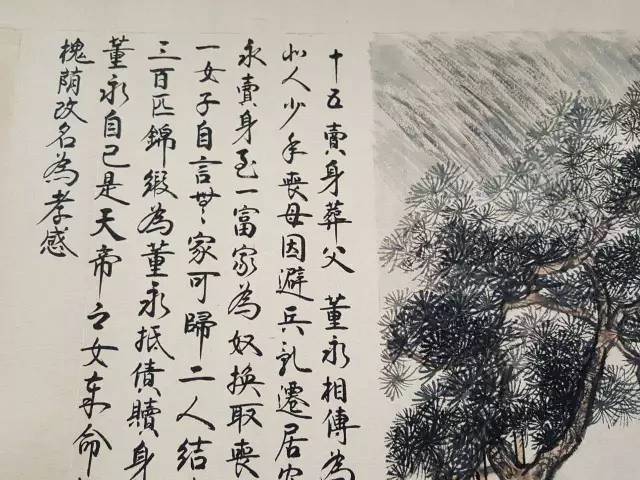 十五賣身葬父 董永相傳為
人少年喪母因避兵乱遷居安
永賣身至一富家為奴換取喪
一女子自言無家可歸二人结
三百匹錦緞為董永抵債贖身
董永自己是天帝之女奉命
槐蔭改名為孝感